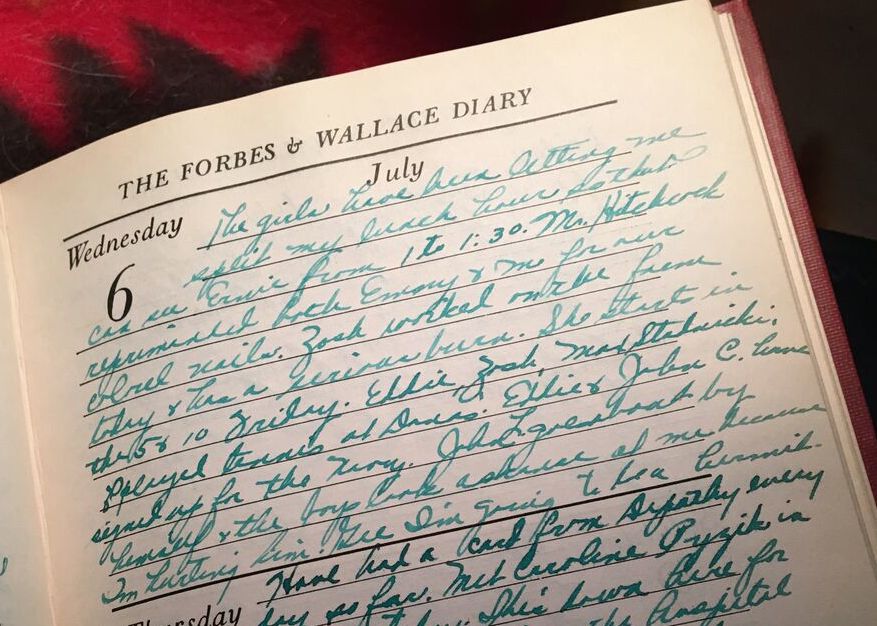 THE FORBES & WALLACE DIARY
July
Wednesday
6
The girls have been letting me
split my lunch hour so that I
can see Ernie from 1 to 1:30. Mr. Hitchcock
reprimanded both Emmy & me for our
colored nails. Zosh worked on the farm
today & has a serious burn. She starts in
the 5 & 10 Friday. Eddie, Zosh, Mad Stalnicki,
played tennis at Days. Eddie & John C. have
signed up for the Navy. John L. goes about by
himself & the boys look askance at me because
I'm hurting him. Gee I'm going to be a hermit.
Thursday
Have had a card from Depathy every
day so far. Met Caroline Pyzik in
She's down here for
the hospital